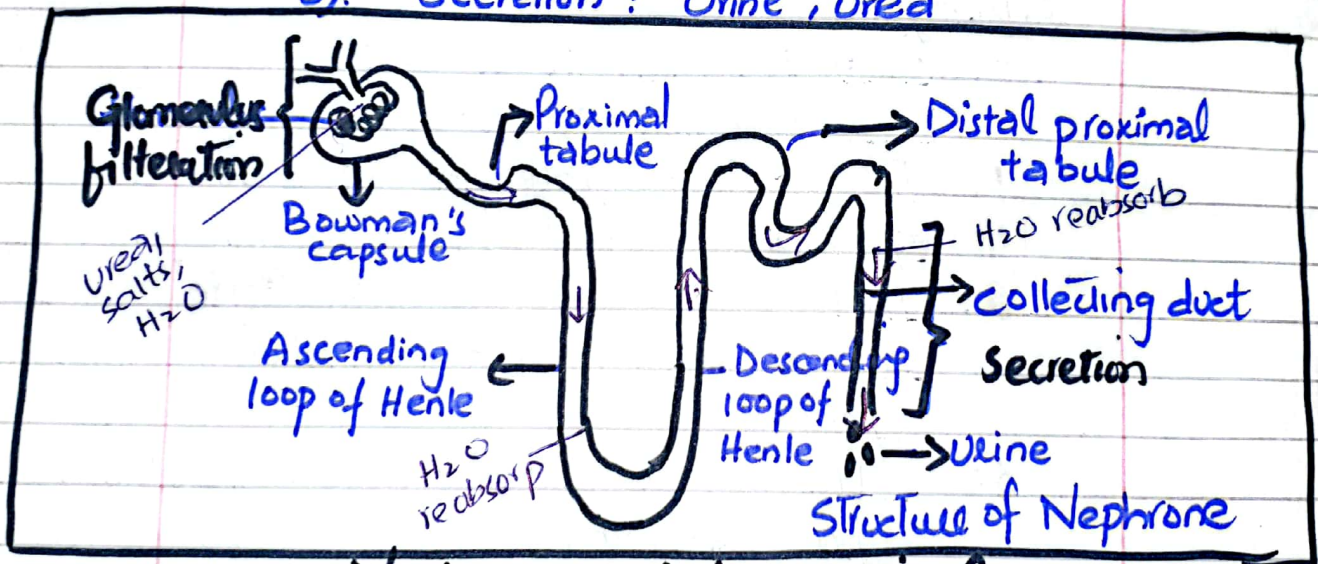 3). Secretion : Urine , Urea
Glomerulus
filteration
Proximal
tabule
Distal proximal
tabule
Bowman's
capsule
urea,
salts,
H2O
H2O reabsorb
collecting duct
Secretion
Ascending
loop of Henle
Descending
loop of
Henle
H2O
reabsorp
Urine
Structure of Nephrone